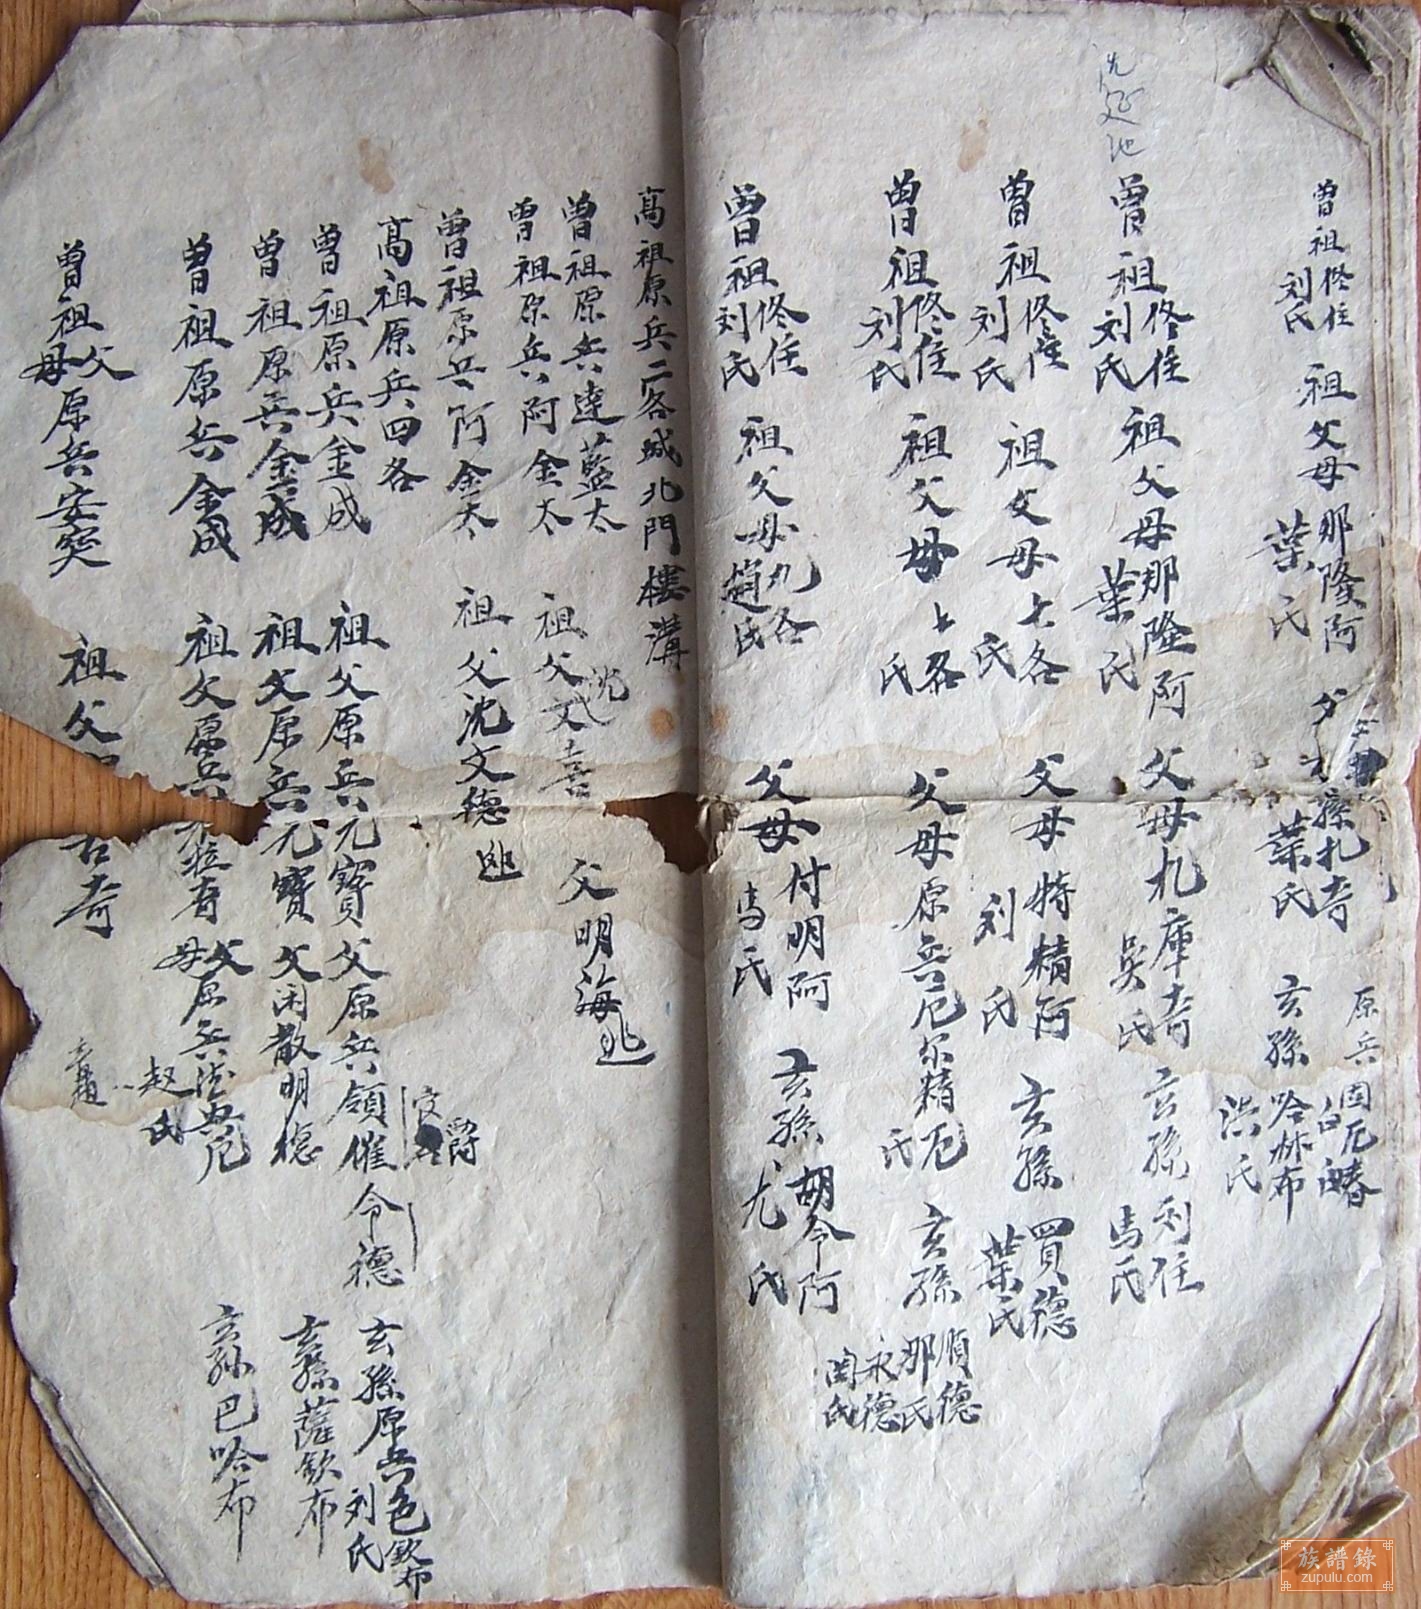 曾祖佟住
刘氏
祖父母那隆阿
葉氏
扎奇
葉氏
原兵
玄孫哈林布
洪氏
曾祖佟住
刘氏
祖父母那隆阿
葉氏
父母扎庫奇
吳氏
玄孫利住
馬氏
曾祖佟住
刘氏
祖父母七各
氏
父母特精阿
刘氏
玄孫買德
葉氏
曾祖佟住
刘氏
祖父母七各
氏
父母原兵厄尔精厄
氏
玄孫順德
那氏
永德
関氏
曾祖佟住
刘氏
祖父母九各
趙氏
父母付明阿
馬氏
玄孫胡令阿
尤氏
高祖原兵二各城北門樓溝
曾祖原兵達藍太
曾祖原兵阿金太
祖父沈文喜
父明海逃
曾祖原兵阿金太
祖父沈文德逃
高祖原兵四各
曾祖原兵金成
祖父原兵元寶
父原兵領催令德
玄孫原兵色欽布
刘氏
曾祖原兵金成
祖父原兵元寶
父闲散明德
玄孫薩欽布
曾祖原兵金成
祖父原兵
父母原兵
赵氏
玄孫巴哈布
曾祖父母原兵安突
祖父
古奇
族譜錄
zupulu.com